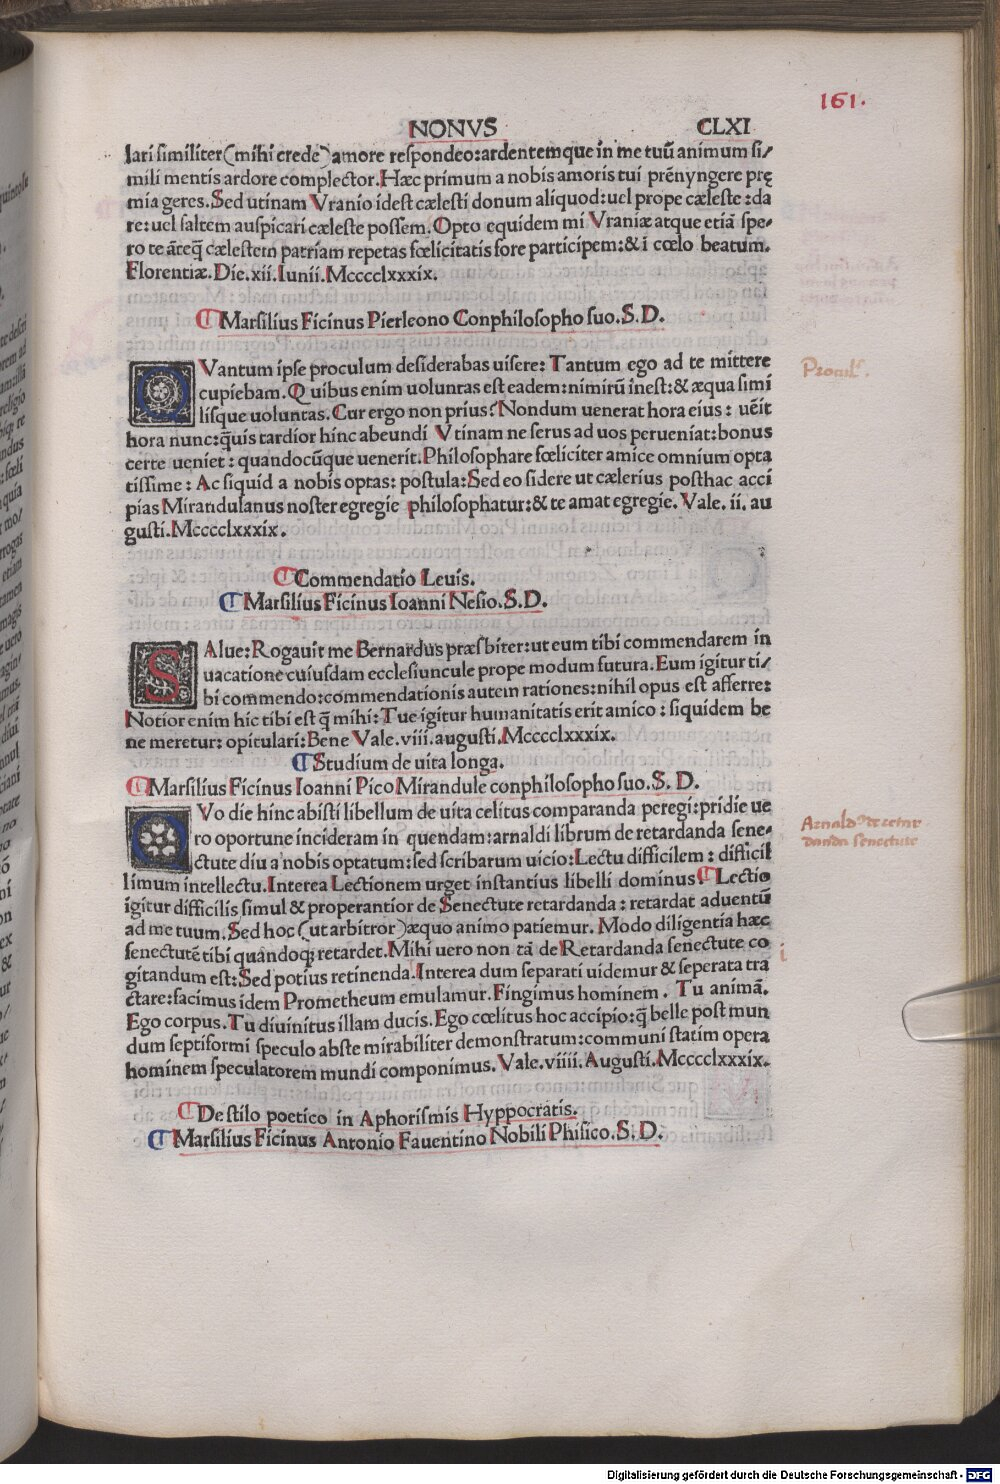 161.
NONVS CLXI
lari similiter(mihi crede)amore respondeo:ardentemque in me tuū animum si/
mili mentis ardore complector.Hæc primum a nobis amoris tui prēnyngere prę
mia geres.Sed utinam Vranio idest cælesti donum aliquod:uel prope cæleste:da
re:uel saltem auspicari cæleste possem.Opto equidem mi Vraniæ atque etiā spe-
ro te āteq̄ cælestem patriam repetas fœlicitatis fore participem:& ī cœlo beatum.
Florentiæ.Die.xii.Iunii.Mcccclxxxix.
Marsilius Ficinus Pierleono Conphilosopho suo.S.D.
VVantum ipse proculum desiderabas uisere:Tantum ego ad te mittere
cupiebam.Quibus enim uoluntas est eadem:nimirū inest:& æqua simi
lisque uoluntas.Cur ergo non prius?Nondum uenerat hora eius: uēit
hora nunc:q̄uis tardior hinc abeundi Vtinam ne serus ad uos perueniat:bonus
certe ueniet: quandocūque uenerit.Philosophare fœliciter amice omnium opta
tissime: Ac siquid a nobis optas: postula:Sed eo sidere ut cælerius posthac acci
pias Mirandulanus noster egregie philosophatur:& te amat egregie.Vale.ii.au
gusti.Mcccclxxxix.
Commendatio Leuis.
Marsilius Ficinus Ioanni Nesio.S.D.
SAlue:Rogauit me Bernardus præsbiter:ut eum tibi commendarem in
uacatione cuiusdam ecclesiuncule prope modum futura.Eum igitur ti/
bi commendo:commendationis autem rationes:nihil opus est afferre:
Notior enim hic tibi est q̄ mihi:Tue igitur humanitatis erit amico: siquidem be
ne meretur: opitulari:Bene Vale.viii.augusti.Mcccclxxxix.
Studium de uita longa.
Marsilius Ficinus Ioanni Pico Mirandule conphilosopho suo.S.D.
Vo die hinc abisti libellum de uita celitus comparanda peregi:pridie ue
ro oportune incideram in quendam:arnaldi librum de retardanda sene-
ctute diu a nobis optatum:sed scribarum uicio:Lectu difficilem: difficil
limum intellectu.Interea Lectionem urget instantius libelli dominus Lectio
igitur difficilis simul & properantior de Senectute retardanda: retardat aduentū
ad me tuum.Sed hoc(ut arbitror)æquo animo patiemur. Modo diligentia hæc
senectutē tibi quandoq; retardet.Mihi uero non tā de Retardanda senectute co
gitandum est:Sed potius retinenda.Interea dum separati uidemur & seperata tra
ctare:facimus idem Prometheum emulamur.Fingimus hominem. Tu animā.
Ego corpus.Tu diuinitus illam ducis.Ego cœlitus hoc accipio:q̄ belle post mun
dum septiformi speculo abste mirabiliter demonstratum:communi statim opera
hominem speculatorem mundi componimus.Vale.viiii.Augusti.Mcccclxxxix.
De stilo poetico in Aphorismis Hyppocratis.
Marsilius Ficinus Antonio Fauentino Nobili Phisico.S.D.
Digitalisierung gefördert durch die Deutsche Forschungsgemeinschaft - DFG